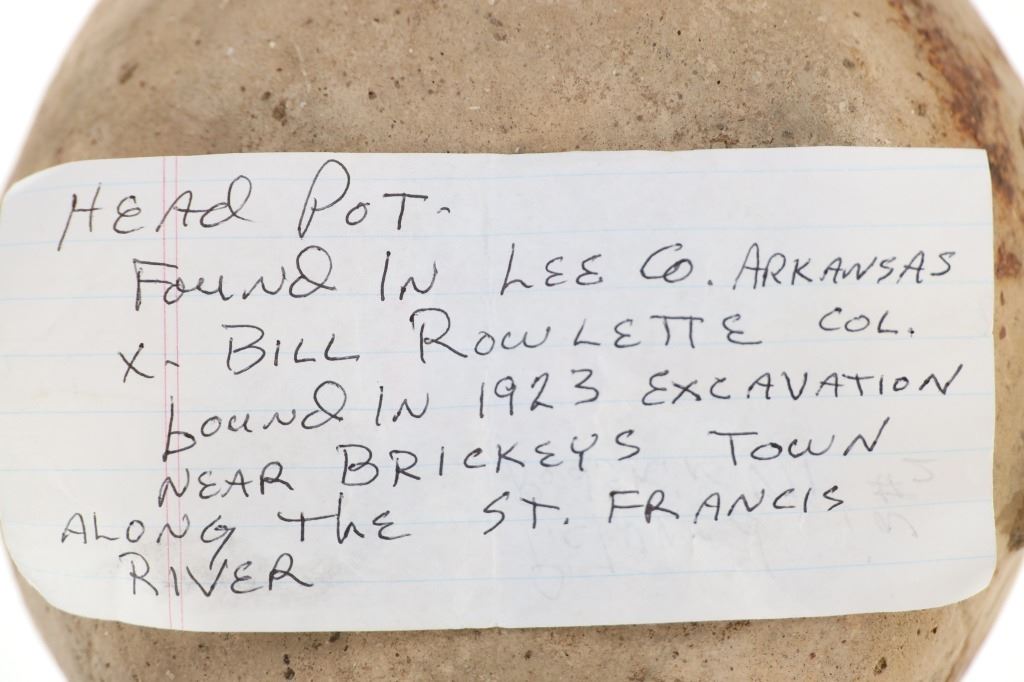 HEAd POT-
Found IN LEE CO. ARKANSAS
X- BILL ROWLETTE COL.
found IN 1923 EXCAVATION
NEAR BRICKEYS TOWN
ALONG thE ST. FRANCIS
RIVER